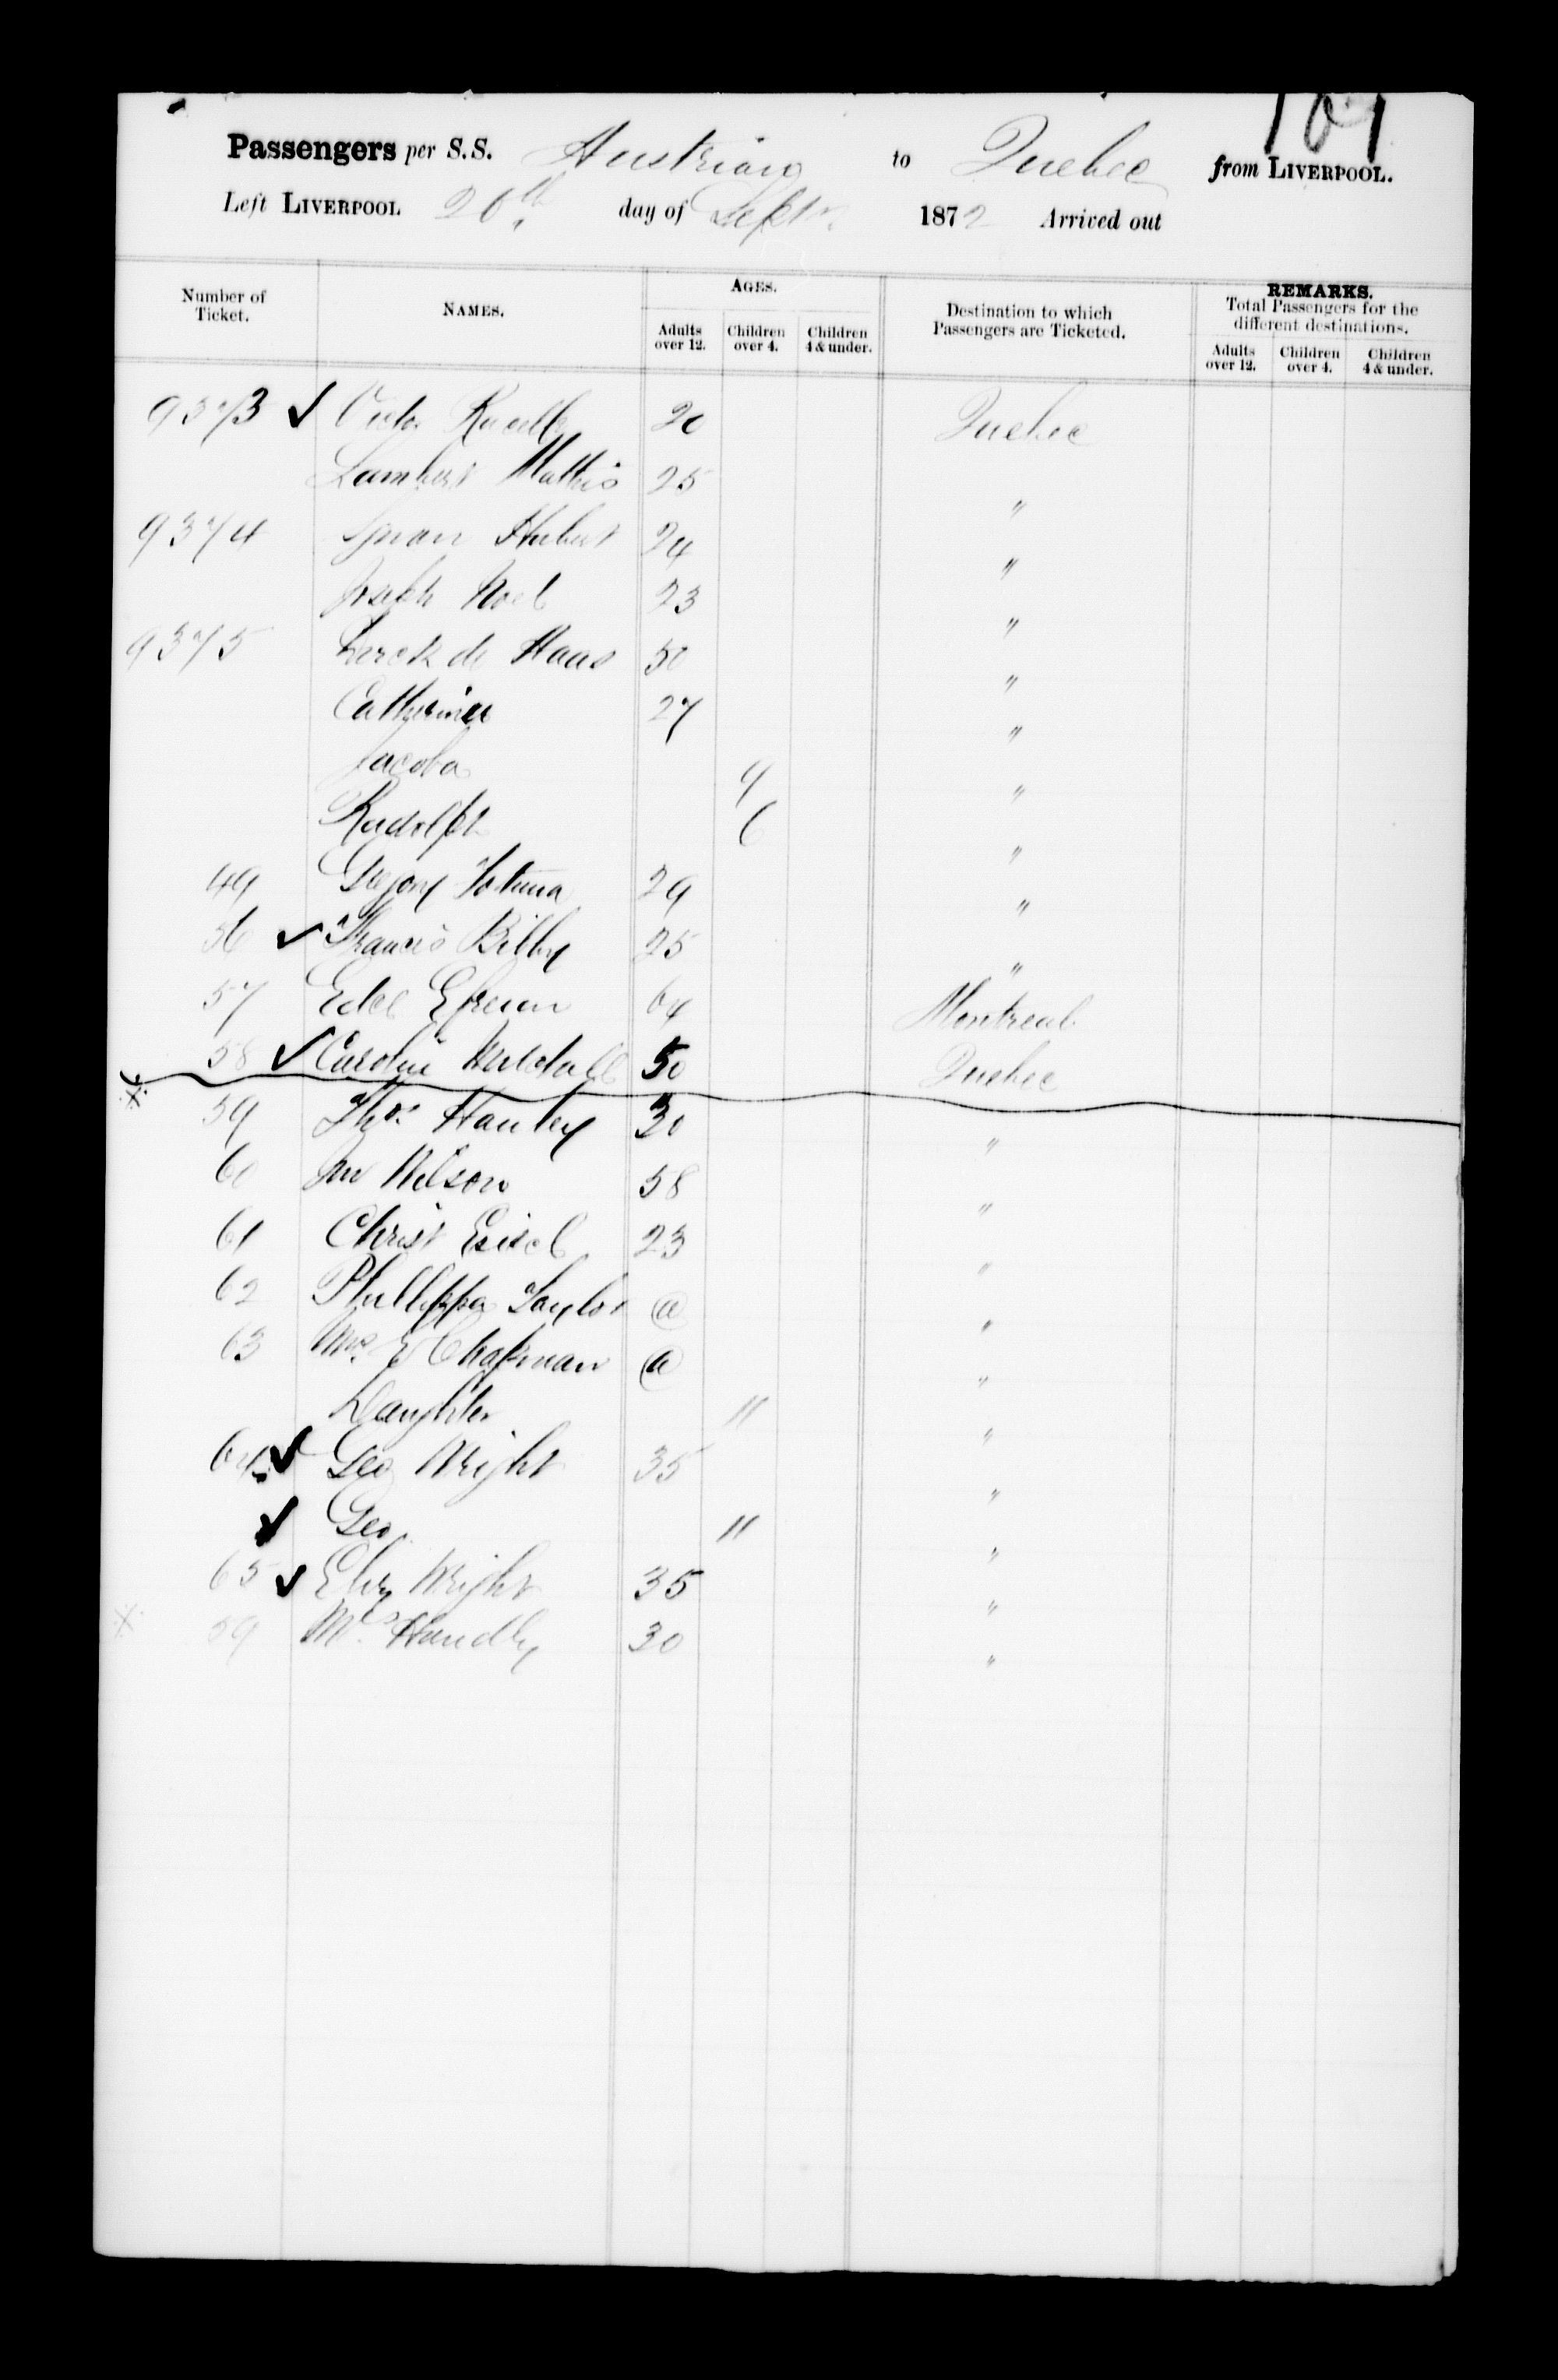 109
Passengers per S.S. Austrian to Quebec from LIVERPOOL.
Left LIVERPOOL 26th day of Septr. 1872 Arrived out
Number of Ticket. NAMES. AGES. Destination to which Passengers are Ticketed. REMARKS. Total Passengers for the different destinations.
Adults over 12. Children over 4. Children 4 & under. Adults over 12. Children over 4. Children 4 & under.
9373 ✓ 20 Quebec
Lambert Mathis 25 "
9374 Hubert 24 "
Joseph Noel 23 "
9375 de Haas 50 "
Catherina 27 "
Jacoba 9 "
Rudolph 6 "
49 Gregory 29 "
56 ✓ Francis Bilby 25 "
57 64 Montreal
58 ✓ Caroline 50 Quebec
※ 59 Thos. Hanley 30 "
60 Jno Wilson 58 "
61 Christ 23 "
62 Phillippa Taylor @ "
63 Mrs. E Chapman @ "
Daughter 11 "
64 ✓ Geo Wright 35 "
✓ Geo. 11 "
65 ✓ Eliz Wright 35 "
※ 59 Mrs Handly 30 "